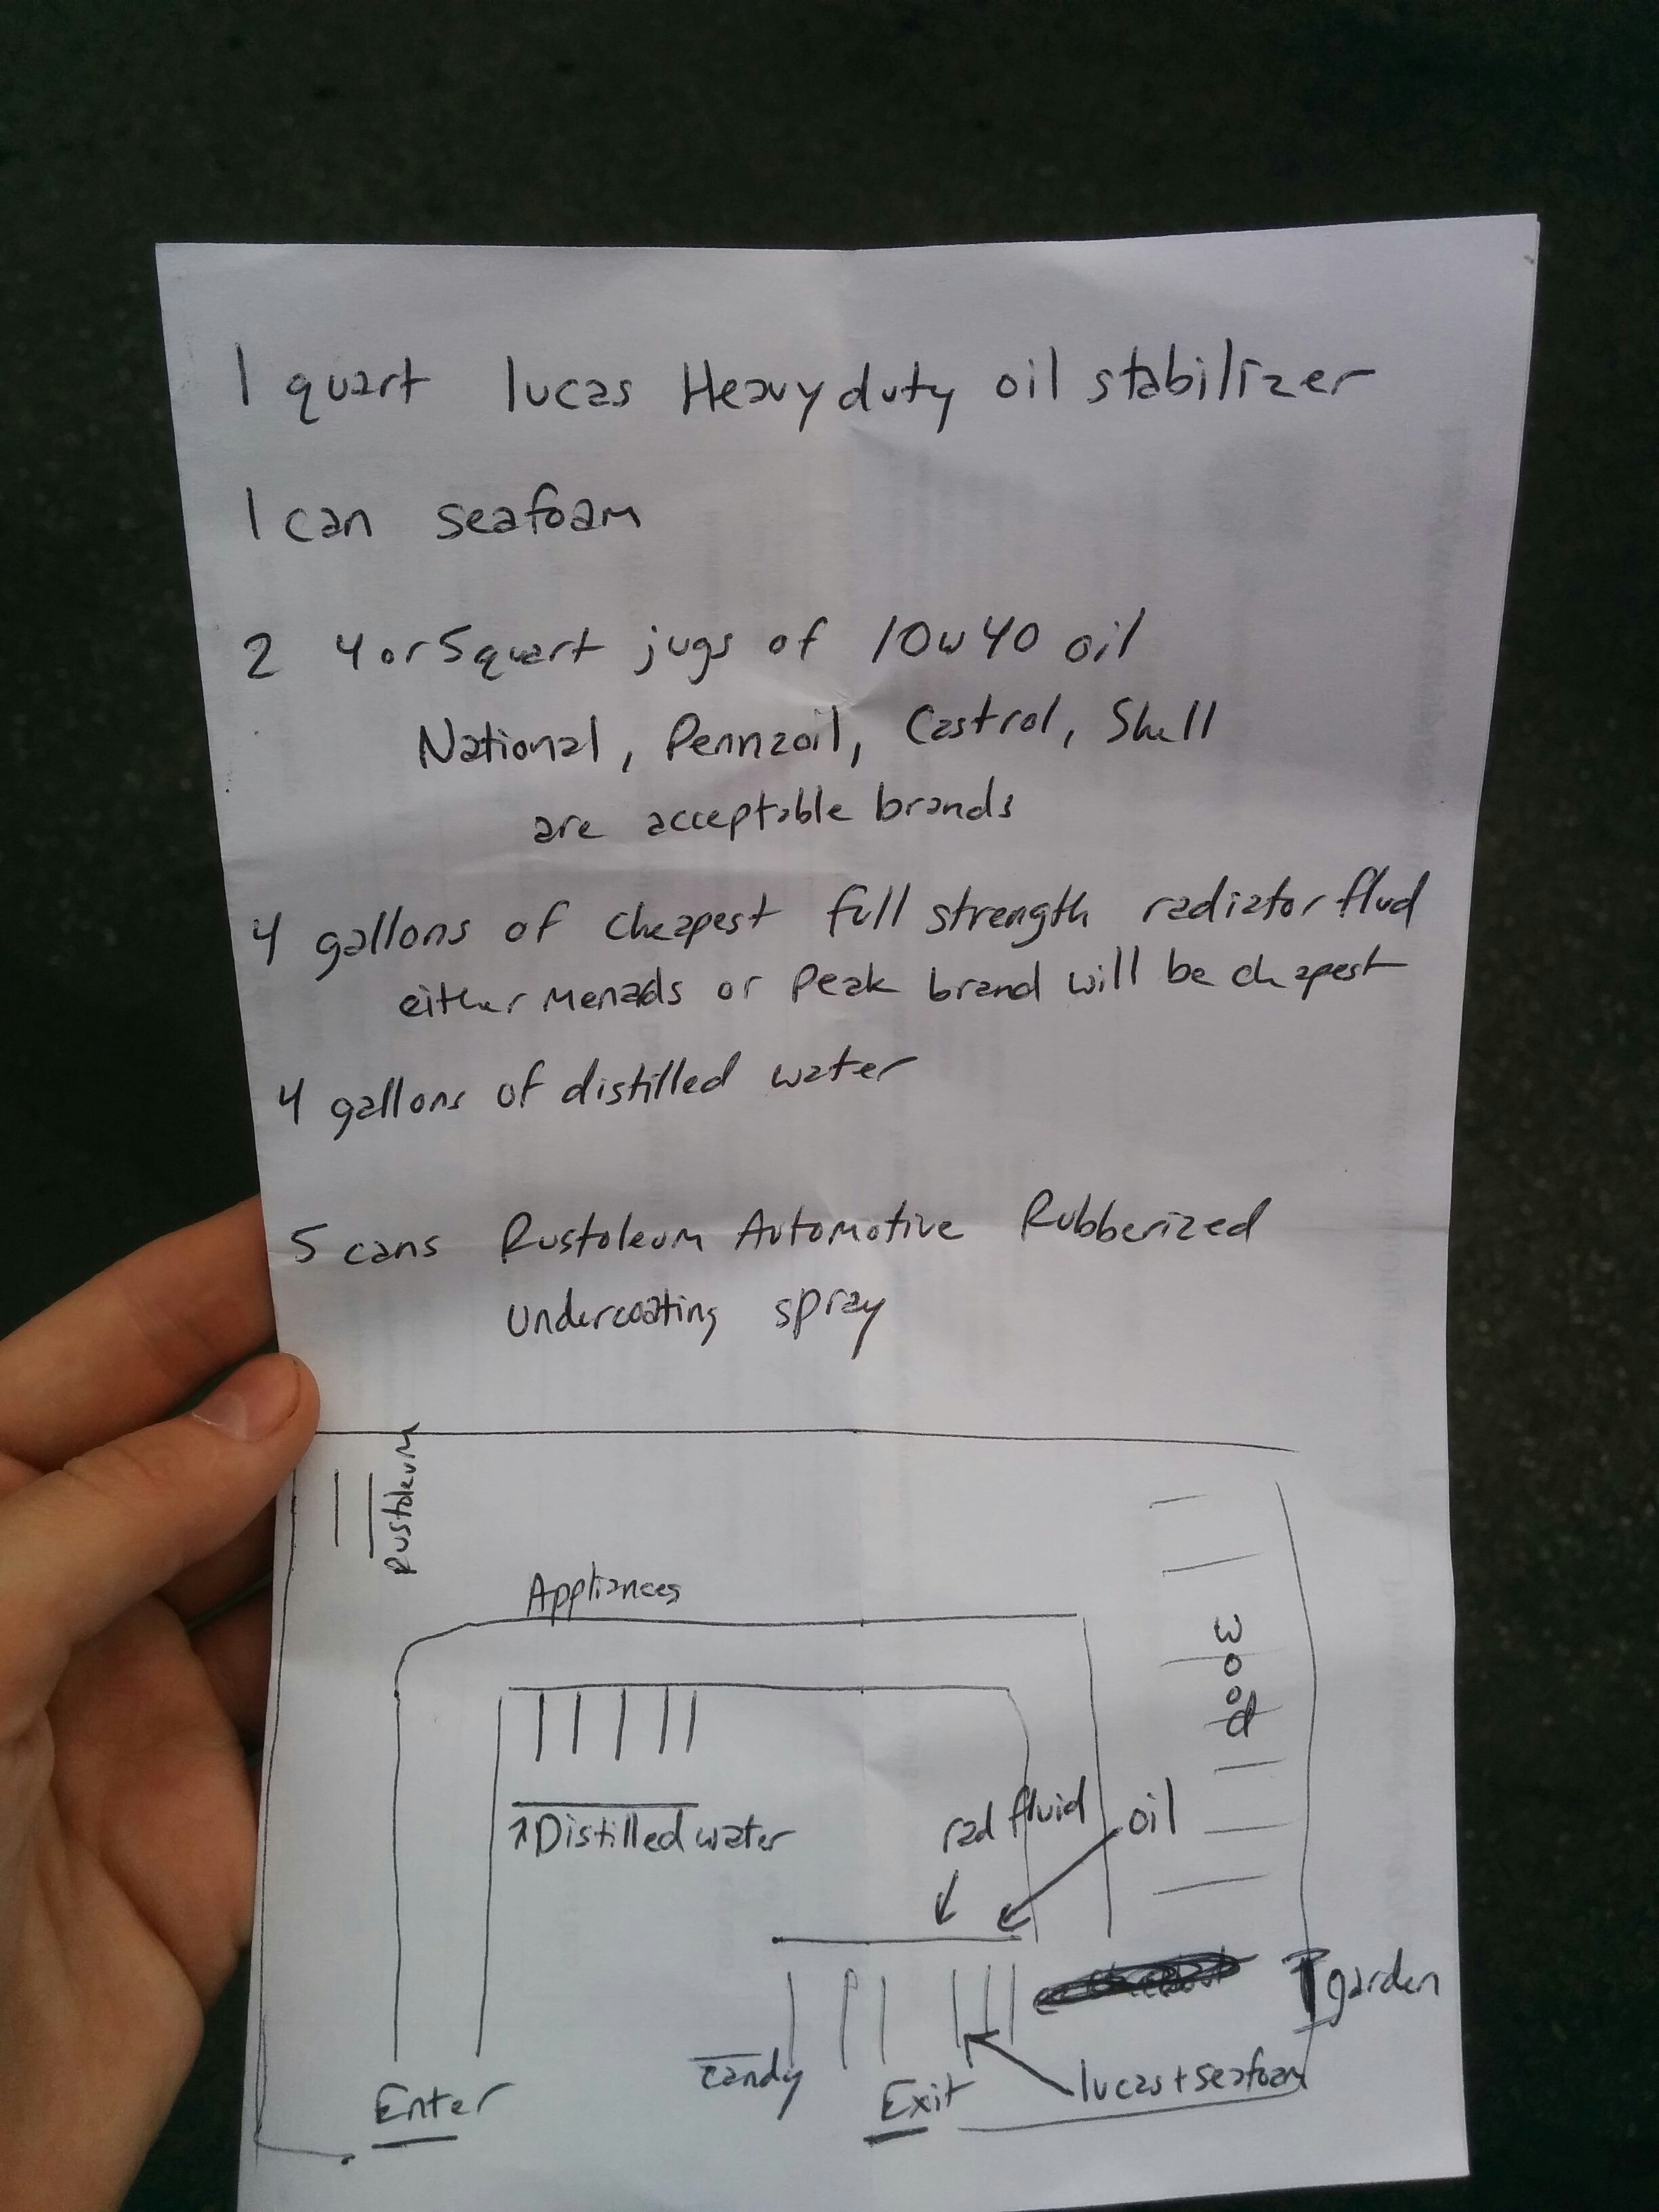 1 quart lucas Heavy duty oil stabilizer
1 can seafoam
2 4 or 5 quart jugs of 10w40 oil
National, Pennzoil, Castrol, Shell
are acceptable brands
4 gallons of cheapest full strength radiator flud
either menads or Peak brand will be cheapest
4 gallons of distilled water
5 cans Rustoleum Automotive Rubberized
undercoating spray
Rustoleum
Appliances
wood
Distilled water
rad fluid
oil
garden
candy
lucas + seafoam
Enter
Exit